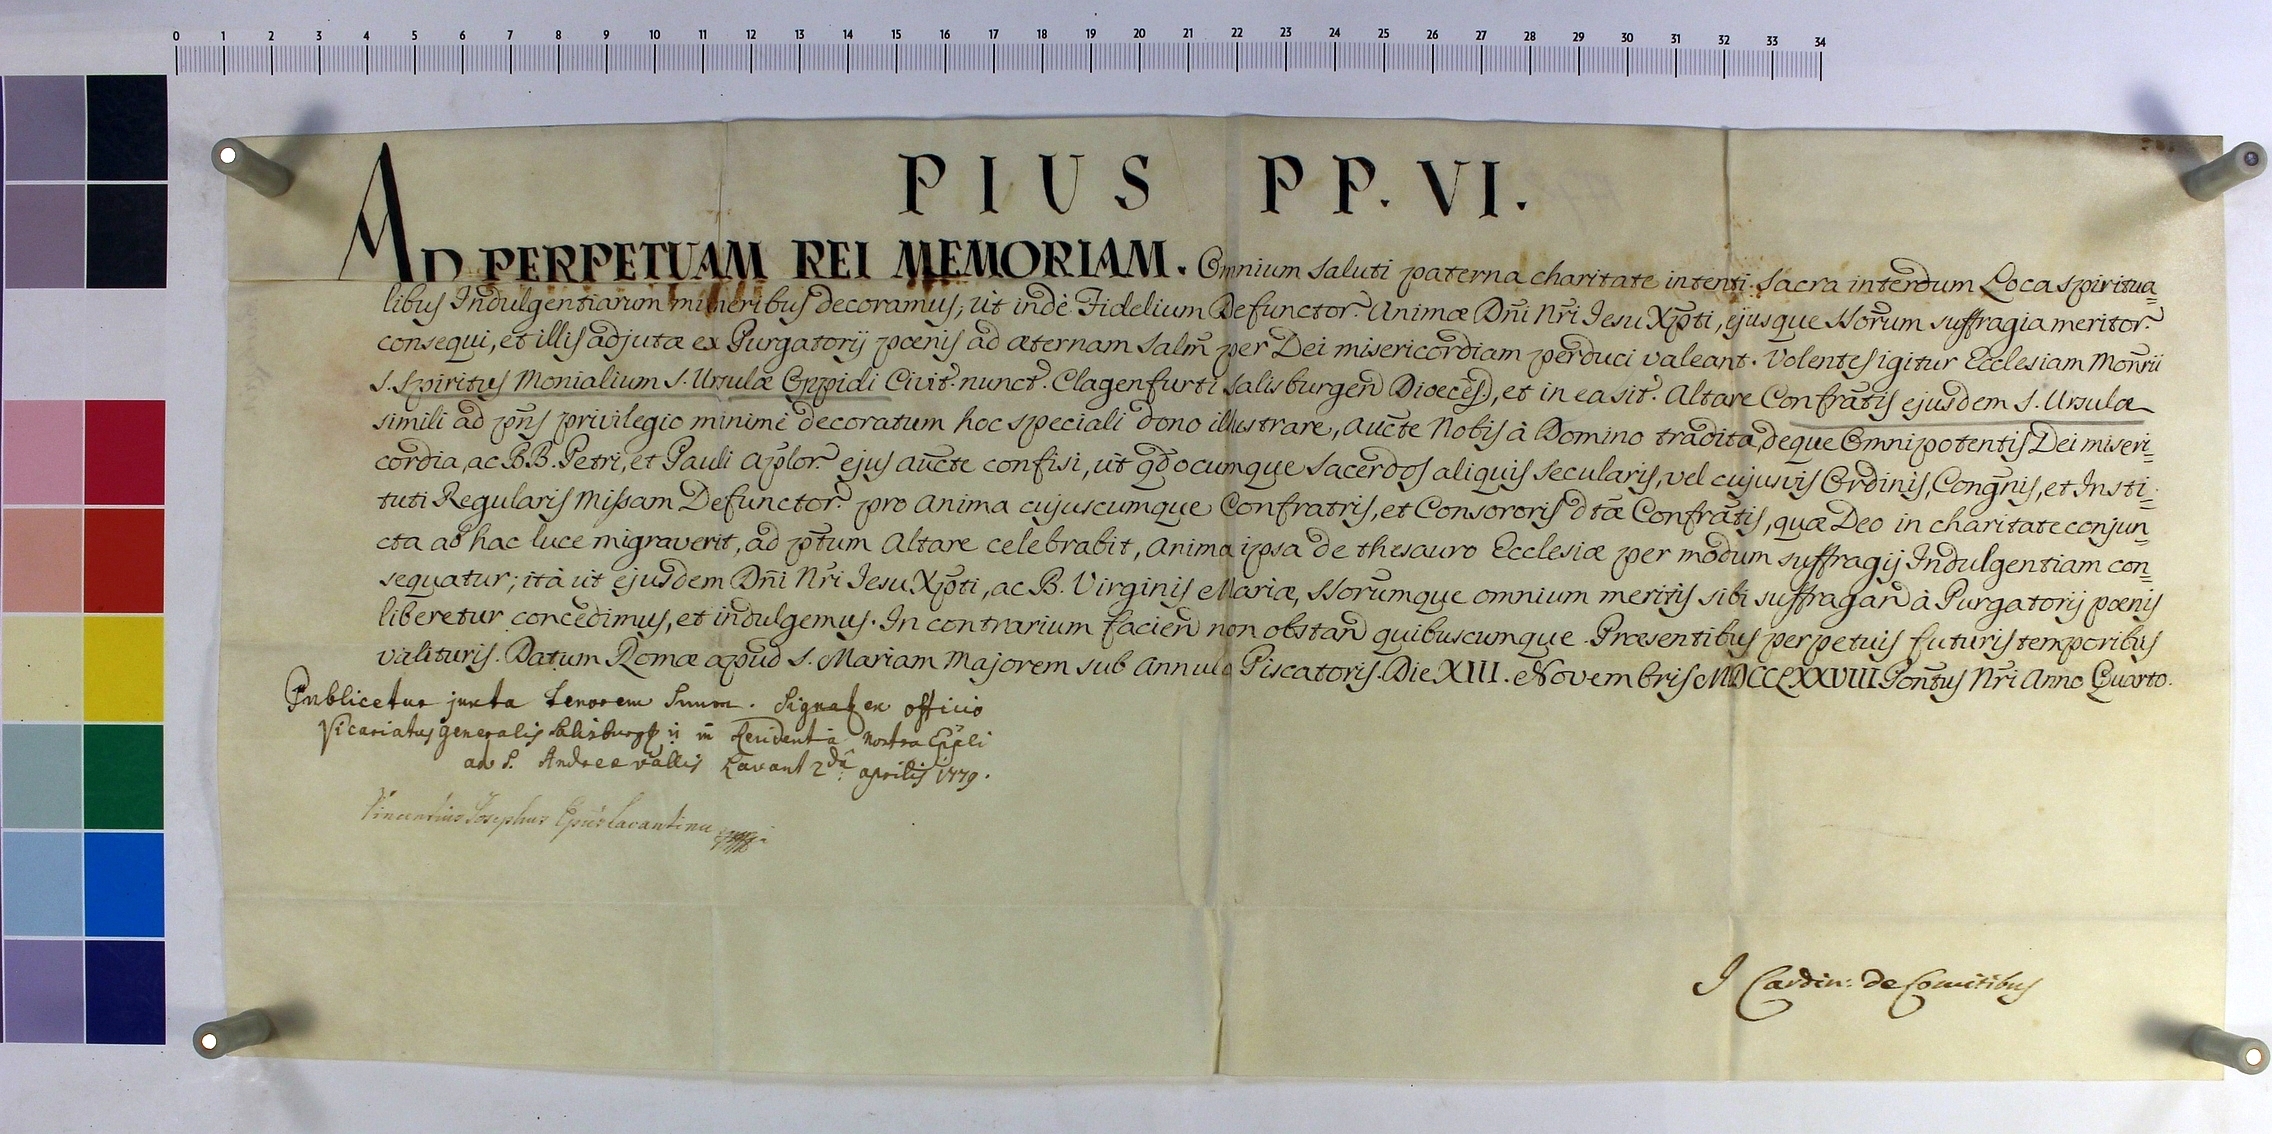 0 1 2 3 4 5 6 7 8 9 10 11 12 13 14 15 16 17 18 19 20 21 22 23 24 25 26 27 28 29 30 31 32 33 34
PIUS PP. VI.
AD PERPETUAM REI MEMORIAM. Omnium saluti paterna charitate intenti sacra interdum Loca spiritua=
libus Indulgentiarum muneribus decoramus, ut indè Fidelium Defunctor. Animæ Dñi Nr̃i Jesu Xp̃ti, ejusque Sśorum suffragia meritor.
consequi, et illis adjutæ ex Purgatorij pœnis ad æternam salm̃ per Dei misericordiam perduci valeant. Volentes igitur Ecclesiam Monr̃ii
S. Spiritus Monialium S. Ursulæ Oppidi Civit. nunct. Clagenfurti Salisburgen Diœces), et in ea sit. Altare Confrãtis ejusdem S. Ursulæ
simili ad pñs privilegio minimè decoratum hoc speciali dono illustrare, aucte Nobis à Domino tradita, deque Omnipotentis Dei miseri=
cordia, ac BB. Petri, et Pauli Ap̃lor. ejus aucte confisi, ut qdocumque Sacerdos aliquis secularis, vel cujusvis Ordinis, Cong̃nis, et Insti=
tuti Regularis Missam Defunctor. pro Anima cujuscumque Confratris, et Consororis dtæ Confrãtis, quæ Deo in charitate conjun=
cta ab hac luce migraverit, ad p̃tum Altare celebrabit, Anima ipsa de thesauro Ecclesiæ per modum suffragij Indulgentiam con=
sequatur; ità ut ejusdem Dñi Nr̃i Jesu Xp̃ti, ac B. Virginis Mariæ, Sśorumque omnium meritis sibi suffragan à Purgatorij pœnis
liberetur concedimus, et indulgemus. In contrarium facien non obstan quibuscumque. Præsentibus perpetuis futuris temporibus
valituris. Datum Romæ apud S. Mariam Majorem sub Annulo Piscatoris. Die XIII. Novembris MDCCLXXVIII Pontus Nr̃i Anno Quarto.
Publicetur juxta tenorem Suum. Signat. ex officio
Vicariatus generalis in Residentia nostra Ep̃pli
ad S. Andreæ vallis Lavant 2dâ aprilis 1779.
Vincentius Josephus Ep̃us Lavantinus
J Cardin: de Comitibus